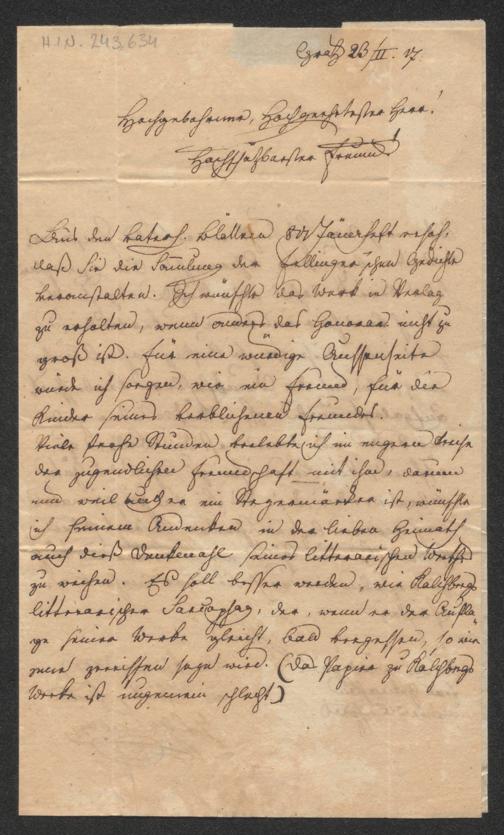 H.I.N. 243.634
Gratz 23/II. 17.
Hochgebohrner, Hochgeehrtester Herr!
Hochschätzbarster Freund!
Aus den vaterl. Blättern Jännerheft ersah,
daß Sie die Sammlung der Fellinger'schen Gedichte
veranstalten. Ich wünschte das Werk in Verlag
zu erhalten, wenn anders das Honorar nicht zu
groß ist. Für eine würdige Aussenseite
würde ich sorgen, wie ein Freund, für die
Kinder seines verblichenen Freundes.
Viele frohe Stunden verlebte ich im engern Kreise
der jugendlichen Freundschaft mit ihm, darum
und weil er ein Steyermärker ist, wünschte
ich seinem Andenken in der lieben Heimath
auch dieß Denkmahl seines litterarischen Werths
zu weihen. Es soll besser werden, wie Kalchbergs
litterarischer Sarcophag, der, wenn er der Aufla-
ge seiner Werke gleicht, bald vergessen, so wie
jene zerrissen seyn wird. (Das Papier zu Kalchbergs
Werke ist ungemein schlecht)